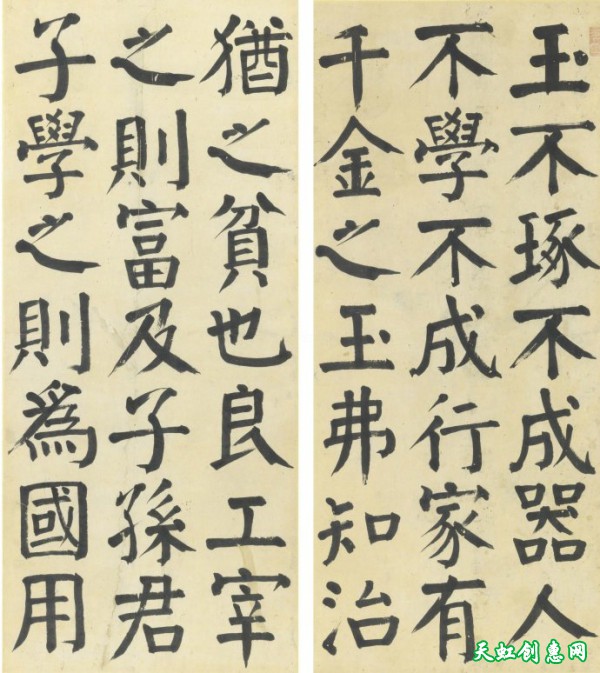 玉不琢不成器人
不學不成行家有
千金之玉弗知治
猶之貧也良工宰
之則富及子孫君
子學之則爲國用
天虹创惠网